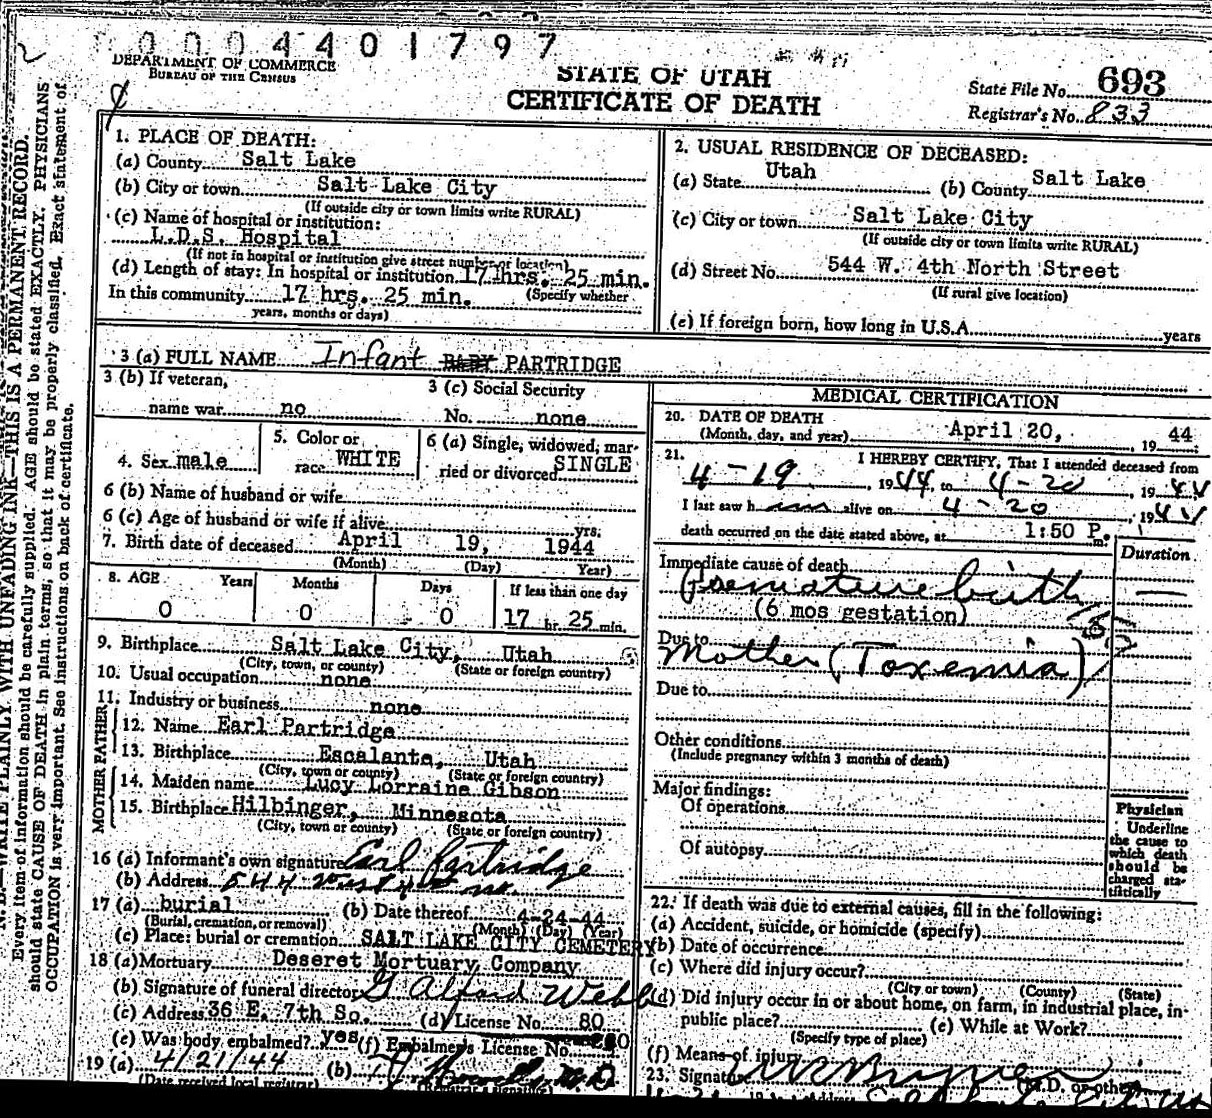 0004401797
DEPARTMENT OF COMMERCE
BUREAU OF THE CENSUS
STATE OF UTAH
CERTIFICATE OF DEATH
State File No. 693
Registrar's No. 833
N. B.—WRITE PLAINLY WITH UNFADING INK—THIS IS A PERMANENT RECORD.
Every item of information should be carefully supplied. AGE should be stated EXACTLY. PHYSICIANS
should state CAUSE OF DEATH in plain terms, so that it may be properly classified. Exact statement of
OCCUPATION is very important. See instructions on back of certificate.
1. PLACE OF DEATH:
(a) County Salt Lake
(b) City or town Salt Lake City
(If outside city or town limits write RURAL)
(c) Name of hospital or institution:
L.D.S. Hospital
(If not in hospital or institution give street number or location)
(d) Length of stay: In hospital or institution 17 hrs. 25 min.
In this community 17 hrs. 25 min. (Specify whether
years, months or days)
2. USUAL RESIDENCE OF DECEASED:
(a) State Utah (b) County Salt Lake
(c) City or town Salt Lake City
(If outside city or town limits write RURAL)
(d) Street No. 544 W. 4th North Street
(If rural give location)
(e) If foreign born, how long in U.S.A. years
3 (a) FULL NAME Infant BABY PARTRIDGE
3 (b) If veteran,
name war no
3 (c) Social Security
No. none
4. Sex male
5. Color or
race WHITE
6 (a) Single, widowed, mar-
ried or divorced SINGLE
6 (b) Name of husband or wife
6 (c) Age of husband or wife if alive yrs.
7. Birth date of deceased April 19, 1944
(Month) (Day) Year)
8. AGE Years Months Days If less than one day
0 0 0 17 hr. 25 min.
9. Birthplace Salt Lake City, Utah
(City, town, or county) (State or foreign country)
10. Usual occupation none
11. Industry or business none
FATHER
12. Name Earl Partridge
13. Birthplace Escalante, Utah
(City, town or county) (State or foreign country)
MOTHER
14. Maiden name Lucy Lorraine Gibson
15. Birthplace Hilbinger, Minnesota
(City, town or county) (State or foreign country)
16 (a) Informant's own signature Earl Partridge
(b) Address 544 West 4th no.
17 (a) burial (b) Date thereof 4-24-44
(Burial, cremation, or removal) (Month) (Day) (Year)
(c) Place: burial or cremation SALT LAKE CITY CEMETERY
18 (a) Mortuary Deseret Mortuary Company
(b) Signature of funeral director G Alford Webb
(c) Address 36 E. 7th So. (d) License No. 80
(e) Was body embalmed? yes (f) Embalmer's License No.
19 (a) 4/21/44 (b) M.D.
(Date received local registrar)
MEDICAL CERTIFICATION
20. DATE OF DEATH
(Month, day, and year) April 20, 19 44
21. I HEREBY CERTIFY, That I attended deceased from
4-19, 1944, to 4-20, 1944
I last saw him alive on 4-20, 1944
death occurred on the date stated above, at 1:50 P m.
Duration
Immediate cause of death
Premature birth
(6 mos gestation)
Due to
Mother (Toxemia)
Due to
Other conditions
(Include pregnancy within 3 months of death)
Major findings:
Of operations
Of autopsy
Physician
Underline
the cause to
which death
should be
charged sta-
tistically
22. If death was due to external causes, fill in the following:
(a) Accident, suicide, or homicide (specify)
(b) Date of occurrence
(c) Where did injury occur?
(City or town) (County) (State)
(d) Did injury occur in or about home, on farm, in industrial place, in-
public place? (e) While at Work?
(Specify type of place)
(f) Means of injury
23. Signature (M.D. or other)